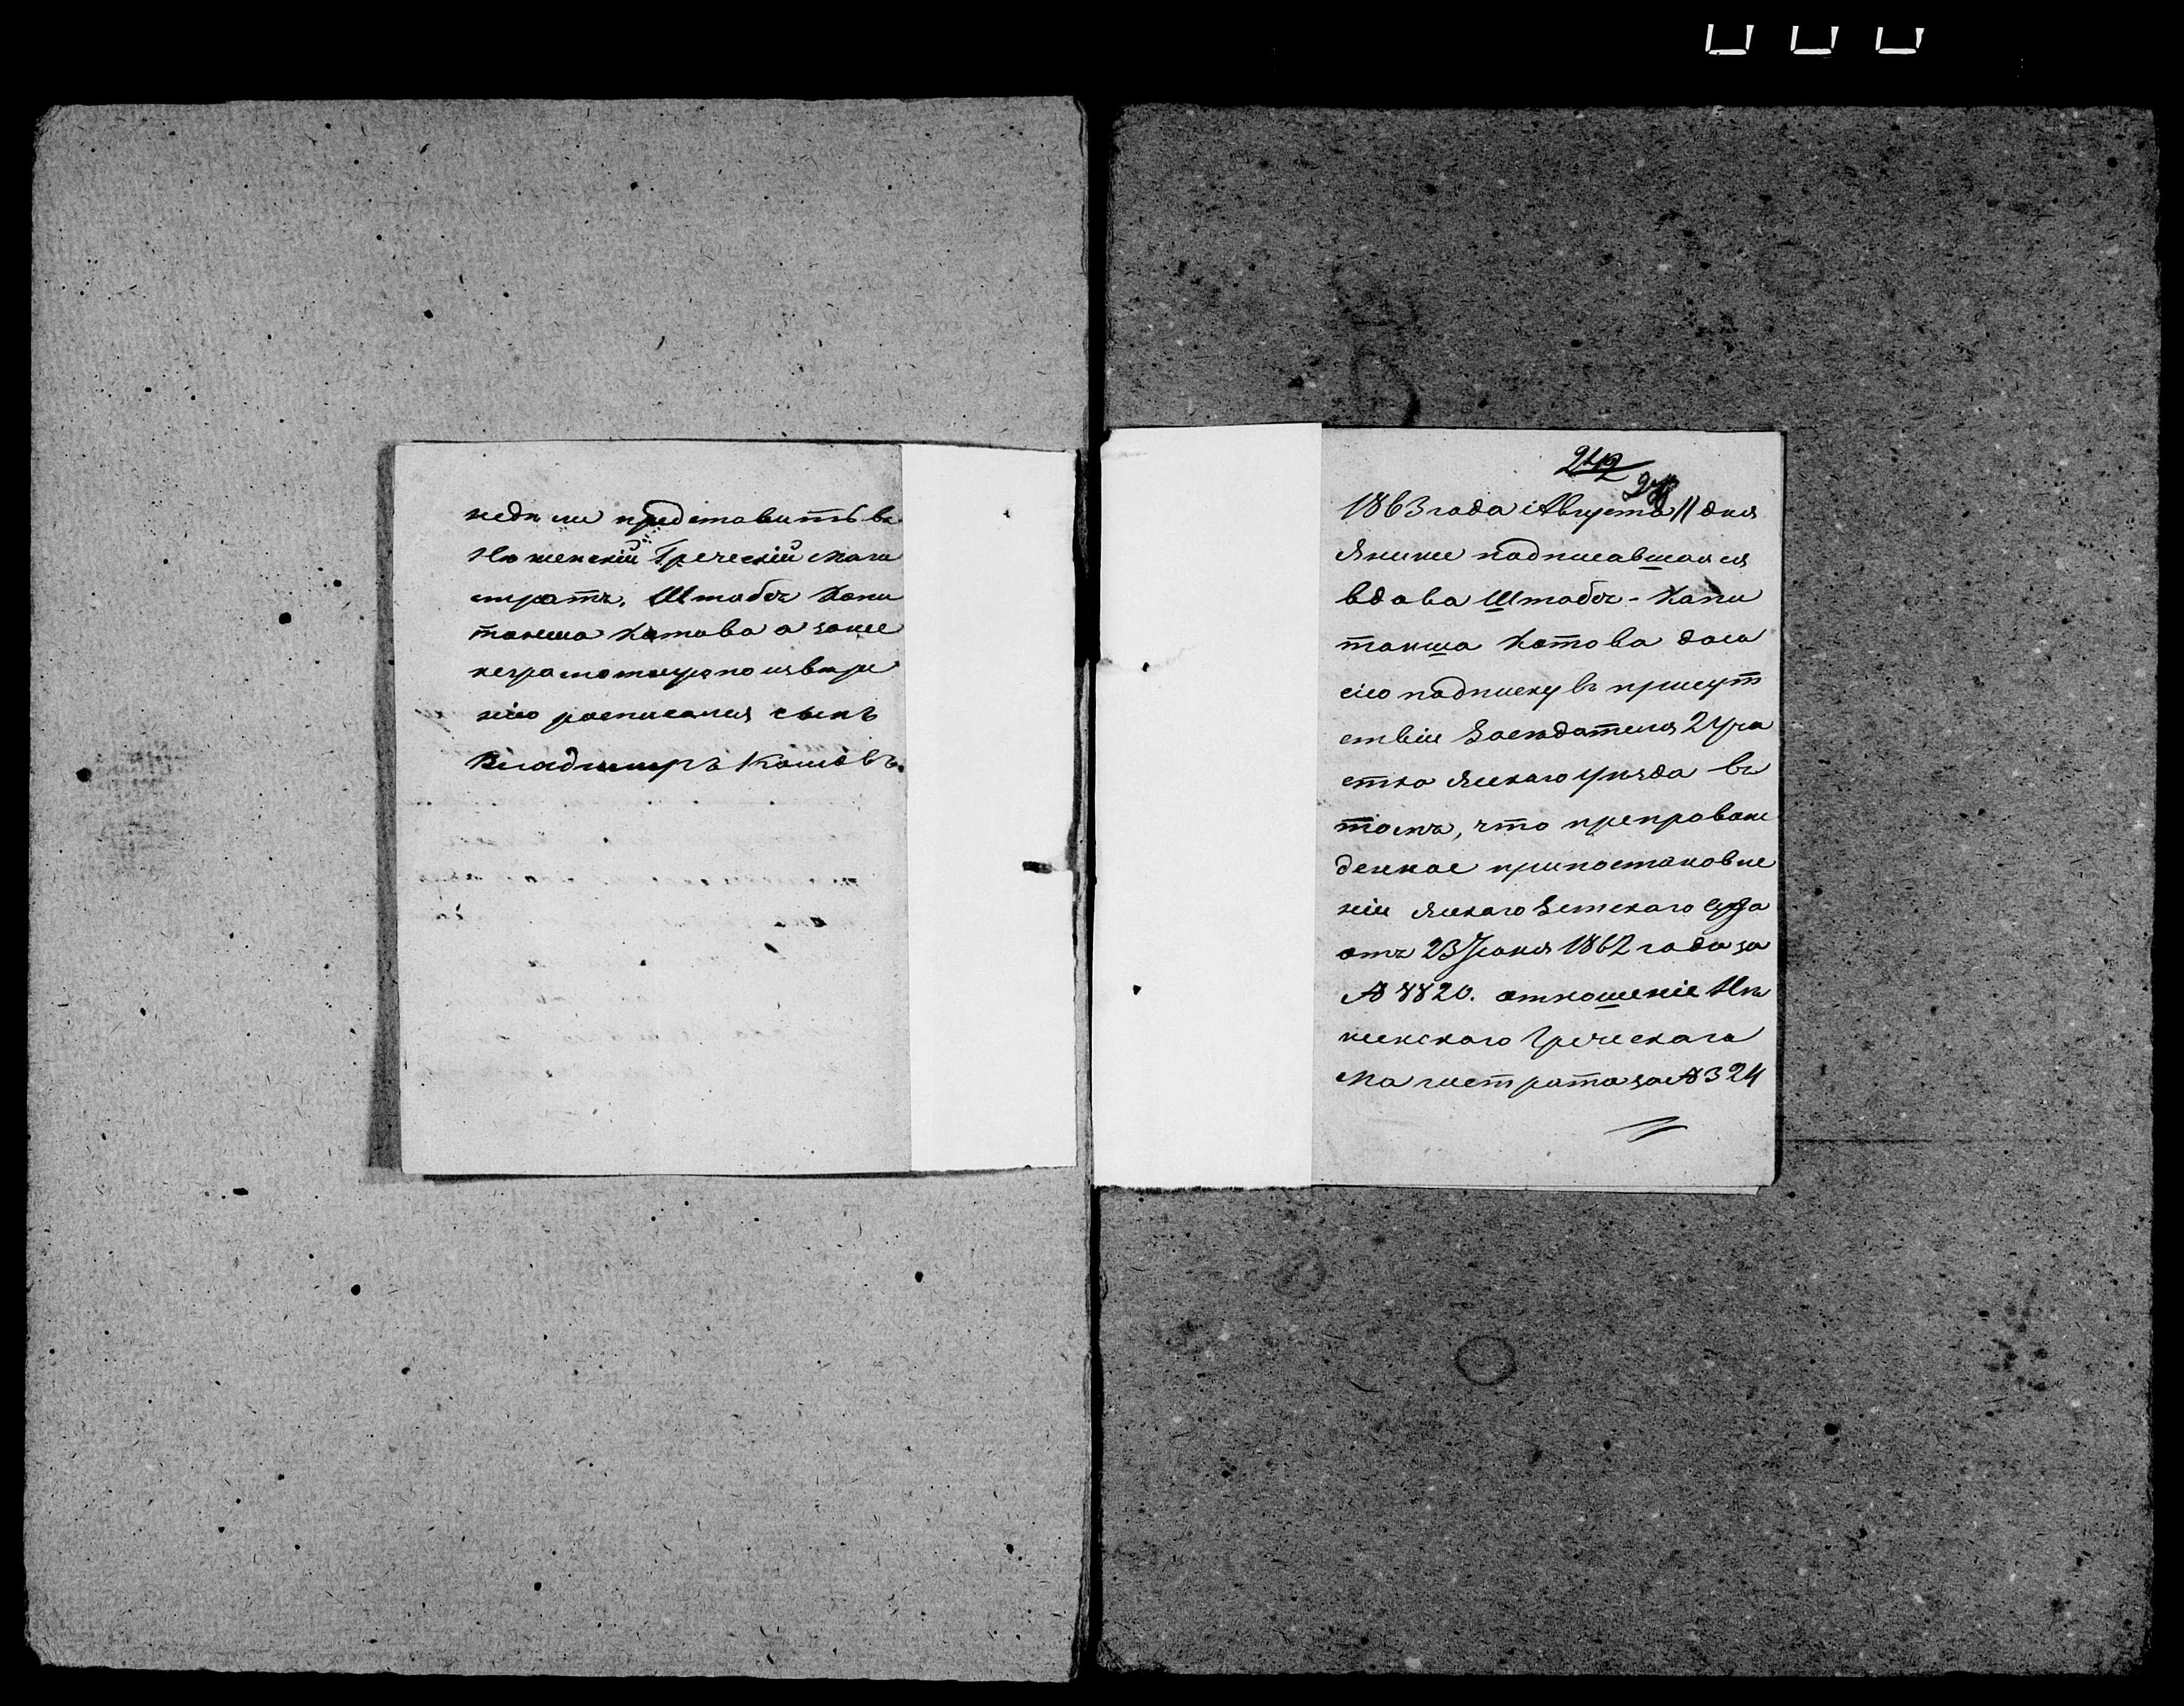 недели представить въ
Нѣженскій Греческій Маги
стратъ. Штабсъ Капи
танша Котова а заме
неграмотную по ея вѣре
нію росписался сынъ
Владимиръ Котовъ.
242
1863 года Августа 11 дня
Я ниже подписавшаяся
вдова Штабсъ-Капи
танша Котова дала
сію подписку въ присут
ствіи Засѣдателя 2 уча
стка Ясскаго уѣзда въ
томъ, что препровож
денное припостановле
ніи Ясскаго Земскаго Суда
отъ 23 Іюня 1862 года за
№ 8820. отношеніе Нѣ
женскаго Греческаго
Магистрата за № 324